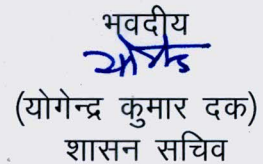 भवदीय
(योगेन्द्र कुमार दक)
शासन सचिव